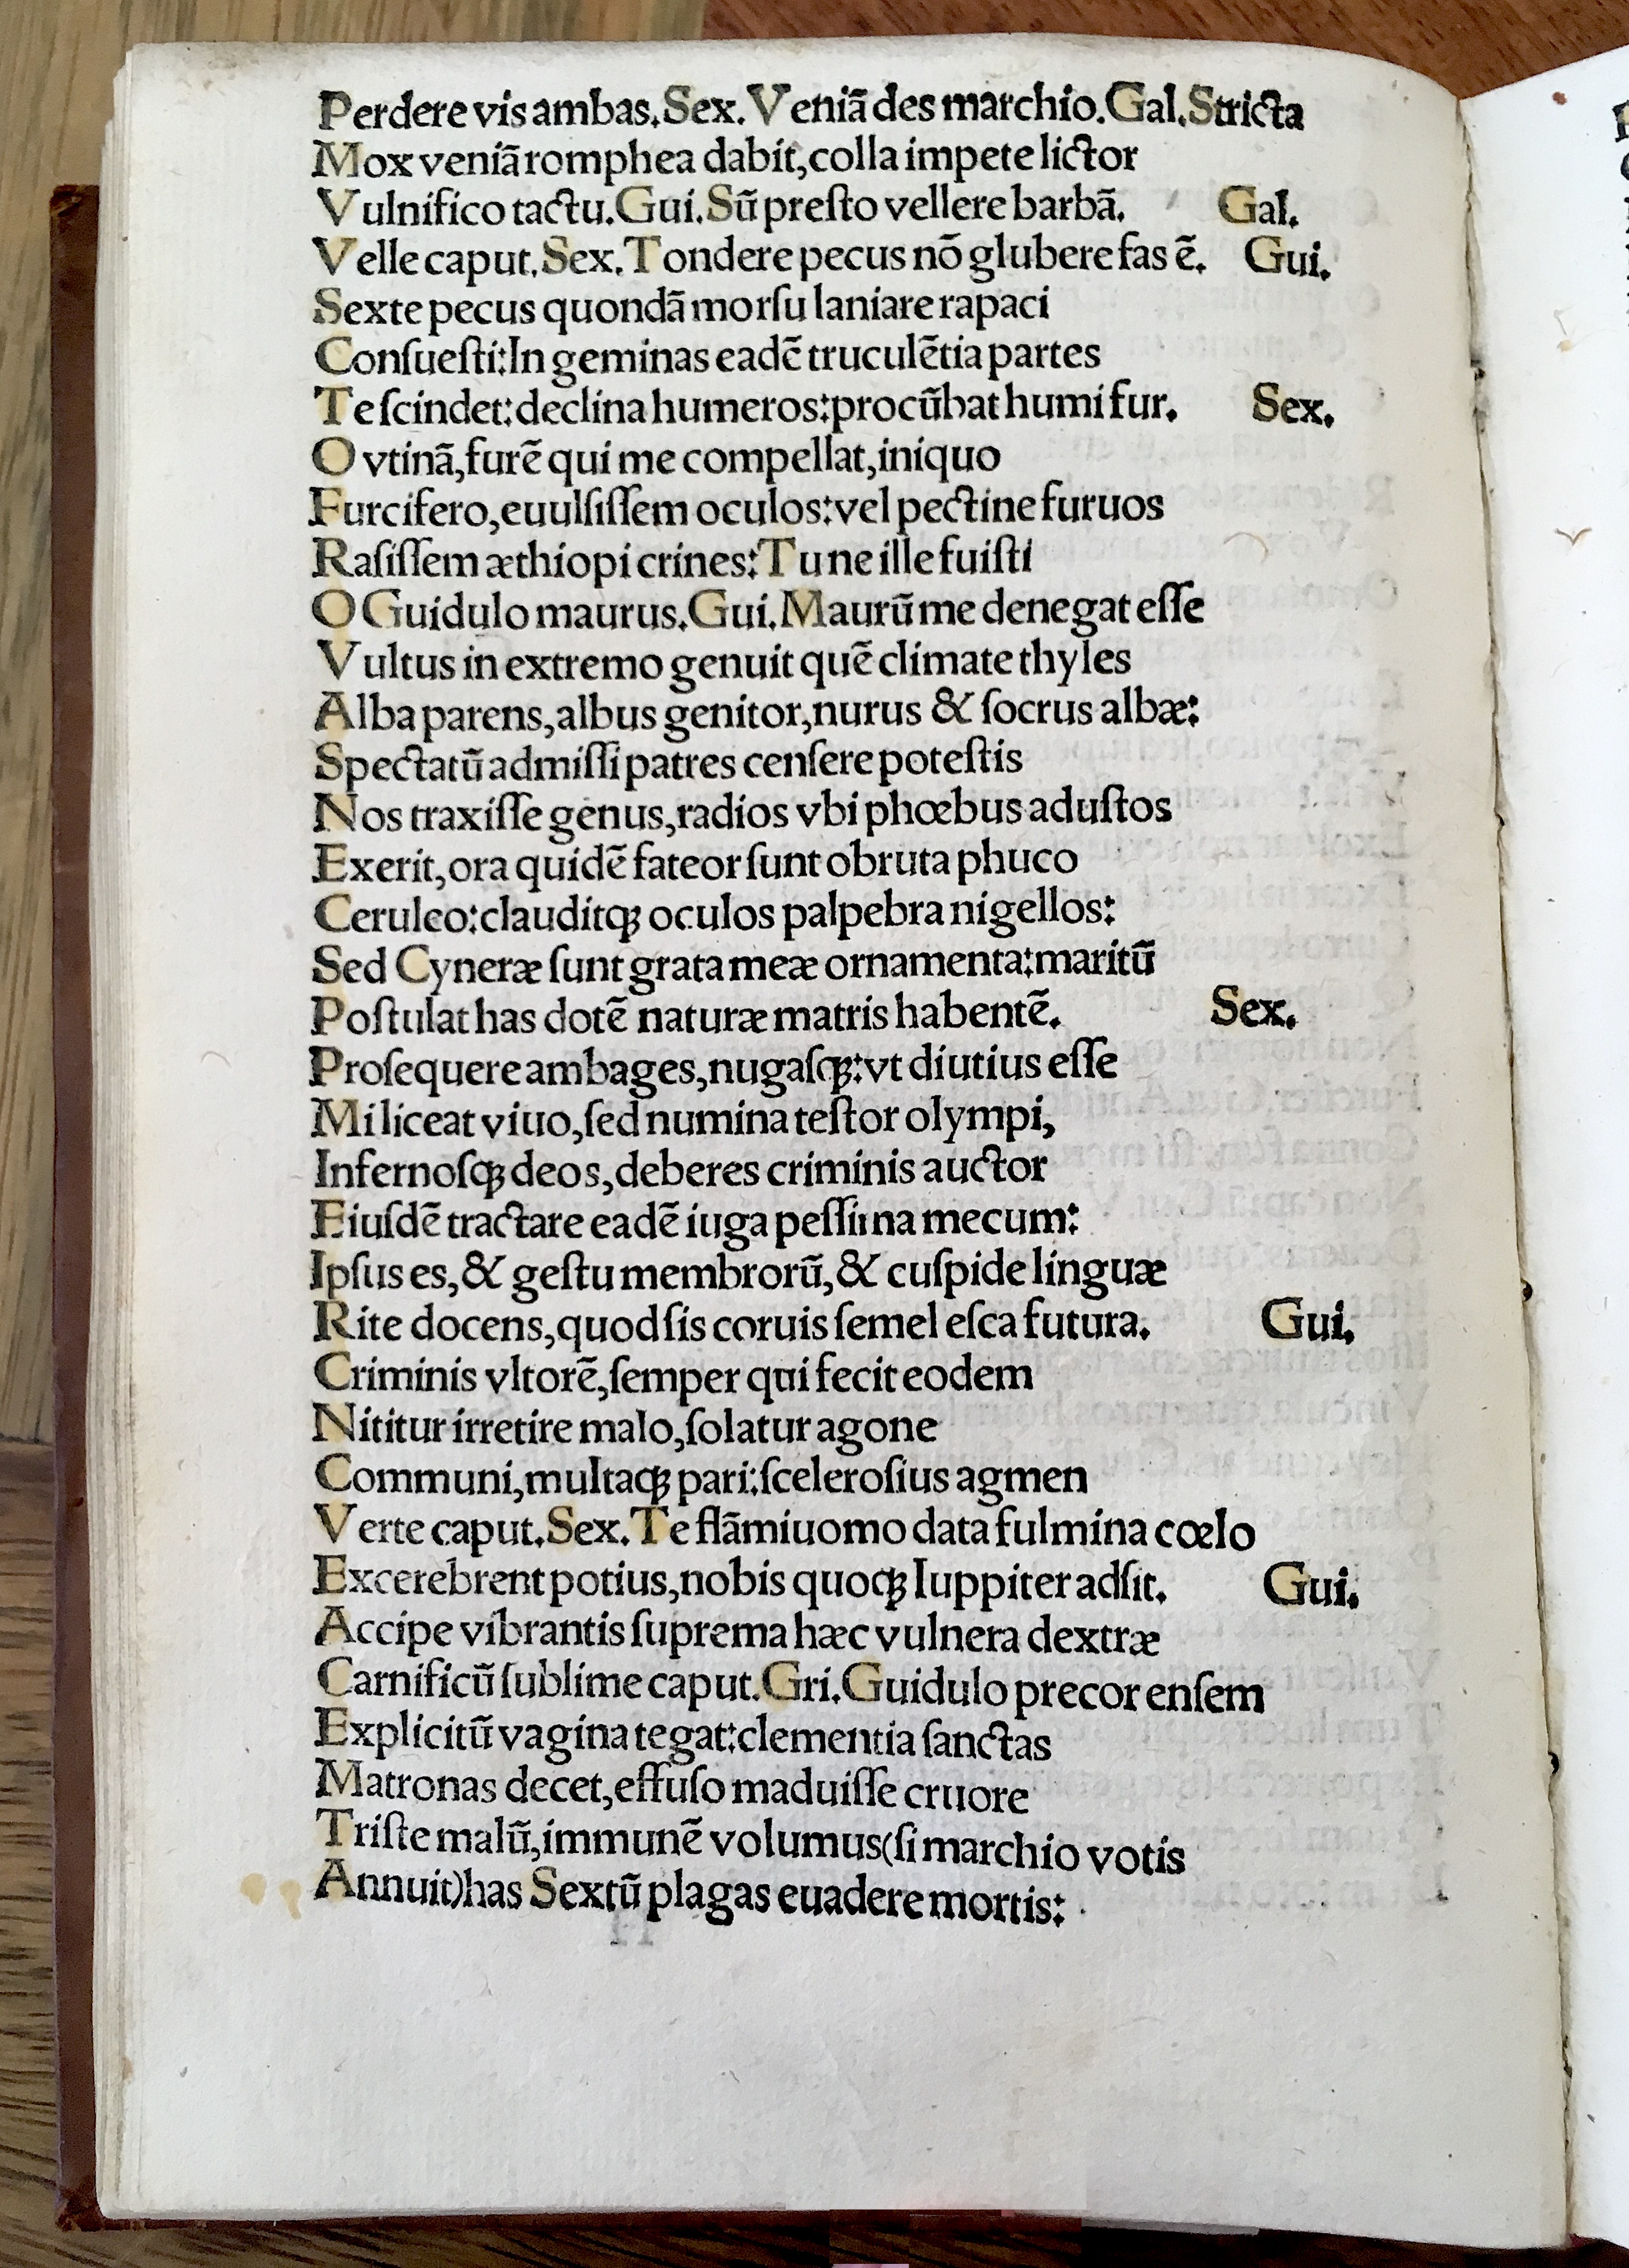 Perdere vis ambas. Sex. Veniã des marchio. Gal. Stricta
Mox veniã romphea dabit, colla impete lictor
Vulnifico tactu. Gui. Sũ preſto vellere barbã. Gal.
Velle caput. Sex. Tondere pecus nõ glubere fas ẽ. Gui.
Sexte pecus quondã morſu laniare rapaci
Conſueſti: In geminas eadẽ truculẽtia partes
Te ſcindet: declina humeros: procũbat humi fur. Sex.
O vtinã, furẽ qui me compellat, iniquo
Furcifero, euulſiſſem oculos: vel pectine furuos
Raſiſſem æthiopi crines: Tu ne ille fuiſti
O Guidulo maurus. Gui. Maurũ me denegat eſſe
Vultus in extremo genuit quẽ climate thyles
Alba parens, albus genitor, nurus & ſocrus albæ:
Spectatũ admiſſi patres cenſere poteſtis
Nos traxiſſe genus, radios vbi phœbus aduſtos
Exerit, ora quidẽ fateor ſunt obruta phuco
Ceruleo: clauditqꝫ oculos palpebra nigellos:
Sed Cyneræ ſunt grata meæ ornamenta: maritũ
Poſtulat has dotẽ naturæ matris habentẽ. Sex.
Proſequere ambages, nugaſqꝫ: vt diutius eſſe
Mi liceat viuo, ſed numina teſtor olympi,
Infernoſqꝫ deos, deberes criminis auctor
Eiuſdẽ tractare eadẽ iuga peſſima mecum:
Ipſus es, & geſtu membrorũ, & cuſpide linguæ
Rite docens, quod ſis coruis ſemel eſca futura. Gui.
Criminis vltorẽ, ſemper qui fecit eodem
Nititur irretire malo, ſolatur agone
Communi, multaqꝫ pari: ſceleroſius agmen
Verte caput. Sex. Te flãmiuomo data fulmina cœlo
Excerebrent potius, nobis quoqꝫ Iuppiter adſit. Gui.
Accipe vibrantis ſuprema hæc vulnera dextræ
Carnificũ ſublime caput. Gri. Guidulo precor enſem
Explicitũ vagina tegat: clementia ſanctas
Matronas decet, effuſo maduiſſe cruore
Triſte malũ, immunẽ volumus (ſi marchio votis
Annuit) has Sextũ plagas euadere mortis: